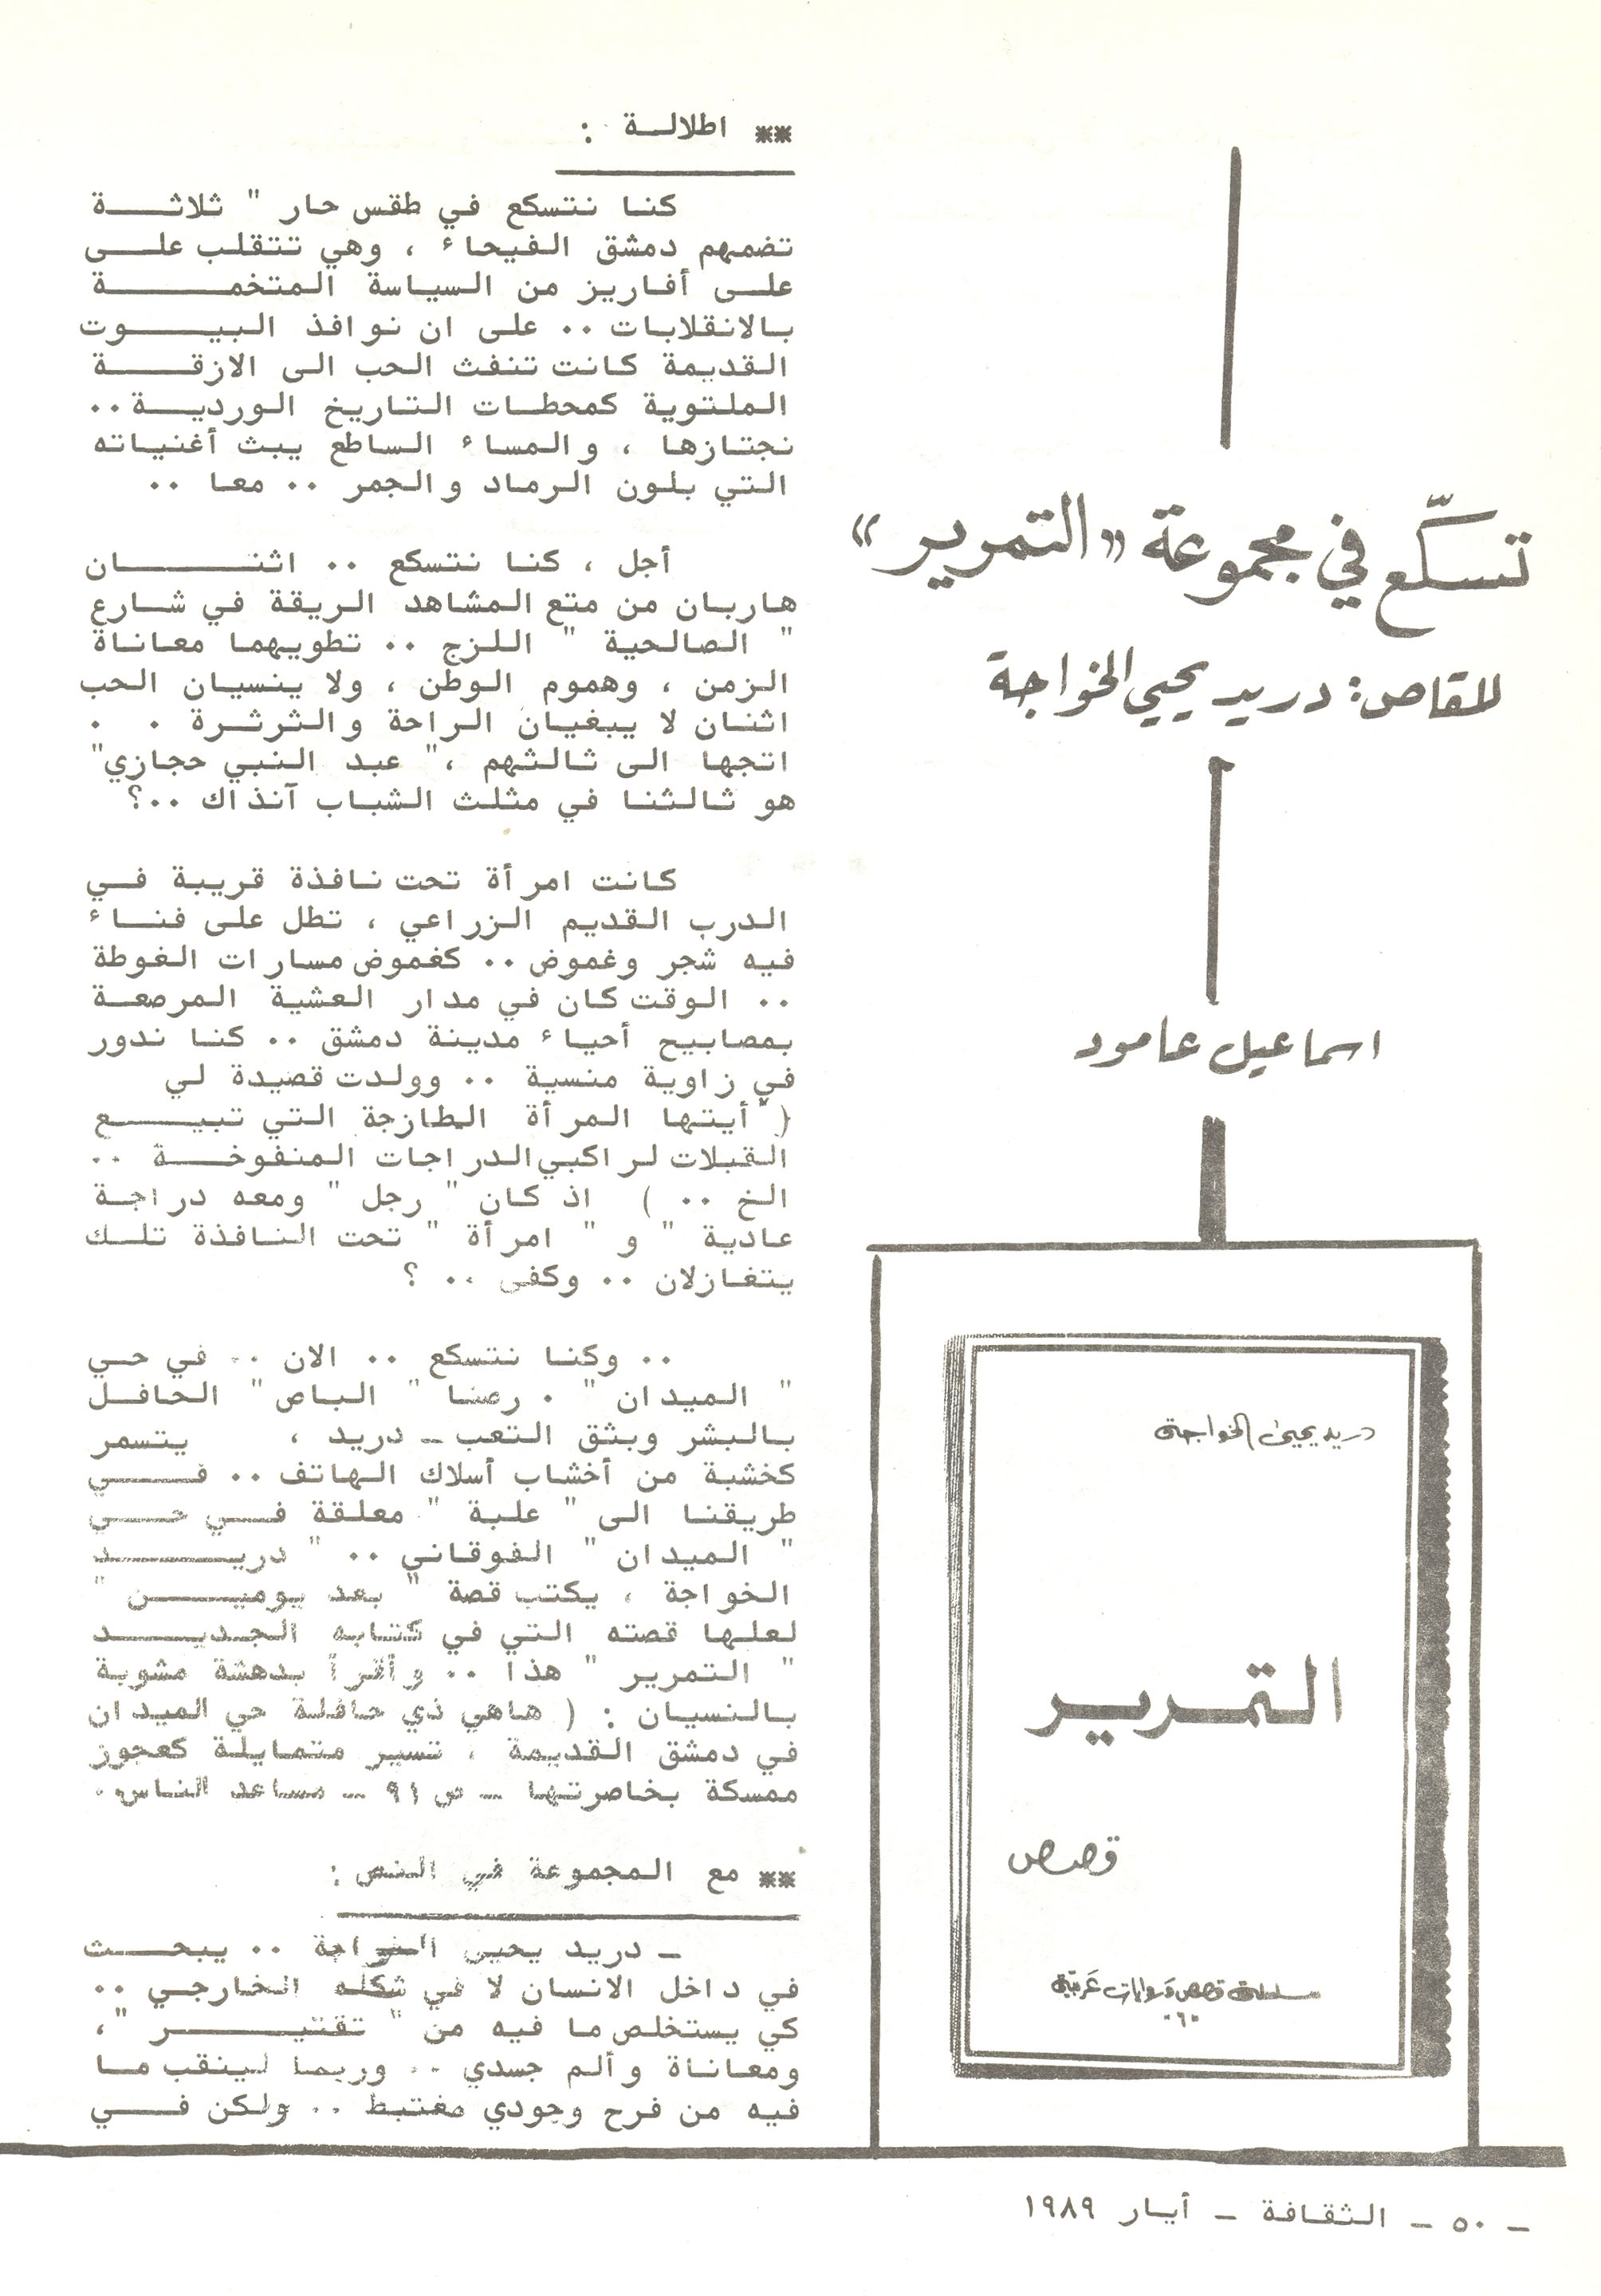 تسكّع في مجموعة «التمرير»
للقاص: دريد يحيى الخواجة
اسماعيل عامود
دريد يحيى الخواجة
التمرير
قصص
سلسلة قصص وروايات عربية
"٦"
** اطلالة :
كنا نتسكع في طقس حار " ثلاثة
تضمهم دمشق الفيحاء ، وهي تتقلب على
على أفاريز من السياسة المتخمة
بالانقلابات .. على ان نوافذ البيوت
القديمة كانت تنفث الحب الى الازقة
الملتوية كمحطات التاريخ الوردية ..
نجتازها ، والمساء الساطع يبث أغنياته
التي بلون الرماد والجمر .. معا ..
أجل ، كنا نتسكع .. اثنان
هاربان من متع المشاهد الريقة في شارع
" الصالحية " اللزج .. تطويهما معاناة
الزمن ، وهموم الوطن ، ولا ينسيان الحب
اثنان لا يبغيان الراحة والثرثرة . .
اتجها الى ثالثهم ،" عبد النبي حجازي"
هو ثالثنا في مثلث الشباب آنذاك ..؟
كانت امرأة تحت نافذة قريبة في
الدرب القديم الزراعي ، تطل على فناء
فيه شجر وغموض .. كغموض مسارات الغوطة
.. الوقت كان في مدار العشية المرصعة
بمصابيح أحياء مدينة دمشق .. كنا ندور
في زاوية منسية .. وولدت قصيدة لي
( "أيتها المرأة الطازجة التي تبيع
القبلات لراكبي الدراجات المنفوخة ..
الخ .. ) اذ كان " رجل " ومعه دراجة
عادية " و " امرأة " تحت النافذة تلك
يتغازلان .. وكفى .. ؟
.. وكنا نتسكع .. الان .. في حي
" الميدان " . رصنا " الباص " الحافل
بالبشر وبثق التعب ـ دريد ، يتسمر
كخشبة من أخشاب أسلاك الهاتف .. في
طريقنا الى " علبة " معلقة في حي
" الميدان " الفوقاني .. " دريد
الخواجة ، يكتب قصة " بعد يومين "
لعلها قصته التي في كتابه الجديد
" التمرير " هذا .. وأقرأ بدهشة مشوبة
بالنسيان : ( هاهي ذي حافلة حي الميدان
في دمشق القديمة ، تسير متمايلة كعجوز
ممسكة بخاصرتها ـ ص ٩١ ـ مساعد الناس.
** مع المجموعة في النص :
ـ دريد يحيى الخواجة .. يبحث
في داخل الانسان لا في شكله الخارجي ..
كي يستخلص ما فيه من " تقتير "،
ومعاناة وألم جسدي .. وربما لينقب ما
فيه من فرح وجودي مغتبط .. ولكن في
ـ ٥٠ ـ الثقافة ـ أيار ١٩٨٩